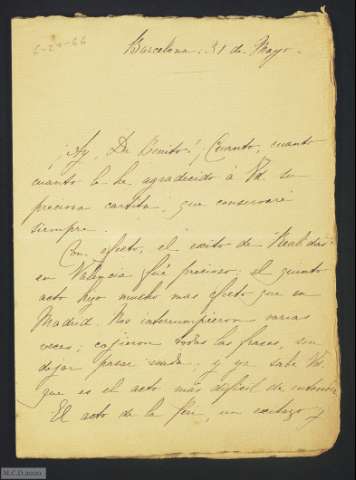 6-24-66
Barcelona: 31 de Mayo.
¡Ay, Dn Benito! ¡Cuanto, cuanto
cuanto le he agradecido á Vd. su
preciosa cartita, que conservaré
siempre.
Con efecto, el exito de Realidad
en Valencia fué precioso; el quinto
acto hizo mucho mas efecto que en
Madrid. Nos interrumpieron varias
veces; cojieron todas las frases, sin
dejar pasar nada, y ya sabe Vd.
que es el acto más dificil de entender.
El acto de la fin, un exitazo y
M.C.D 2020